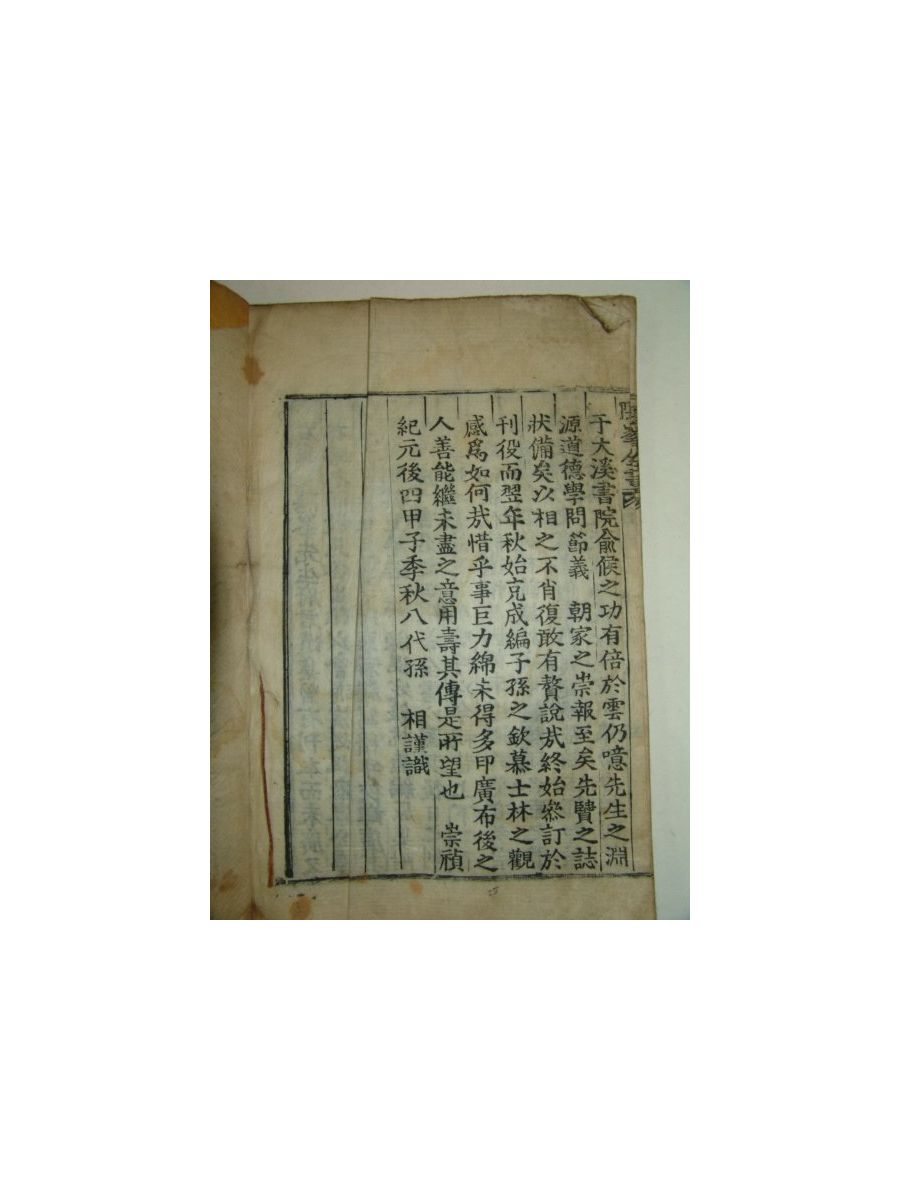 于大溪書院俞候之功有倍於雲仍噫先生之淵
源道德學問節義 朝家之崇報至矣先賢之誌
狀備矣以相之不肖復敢有贅說㦲終始叅訂於
刊役而翌年秋始克成編子孫之欽慕士林之觀
感爲如何㦲惜乎事巨力綿未得多印廣布後之
人善能繼未盡之意用壽其傳是所望也 崇禎
紀元後四甲子季秋八代孫 相謹識